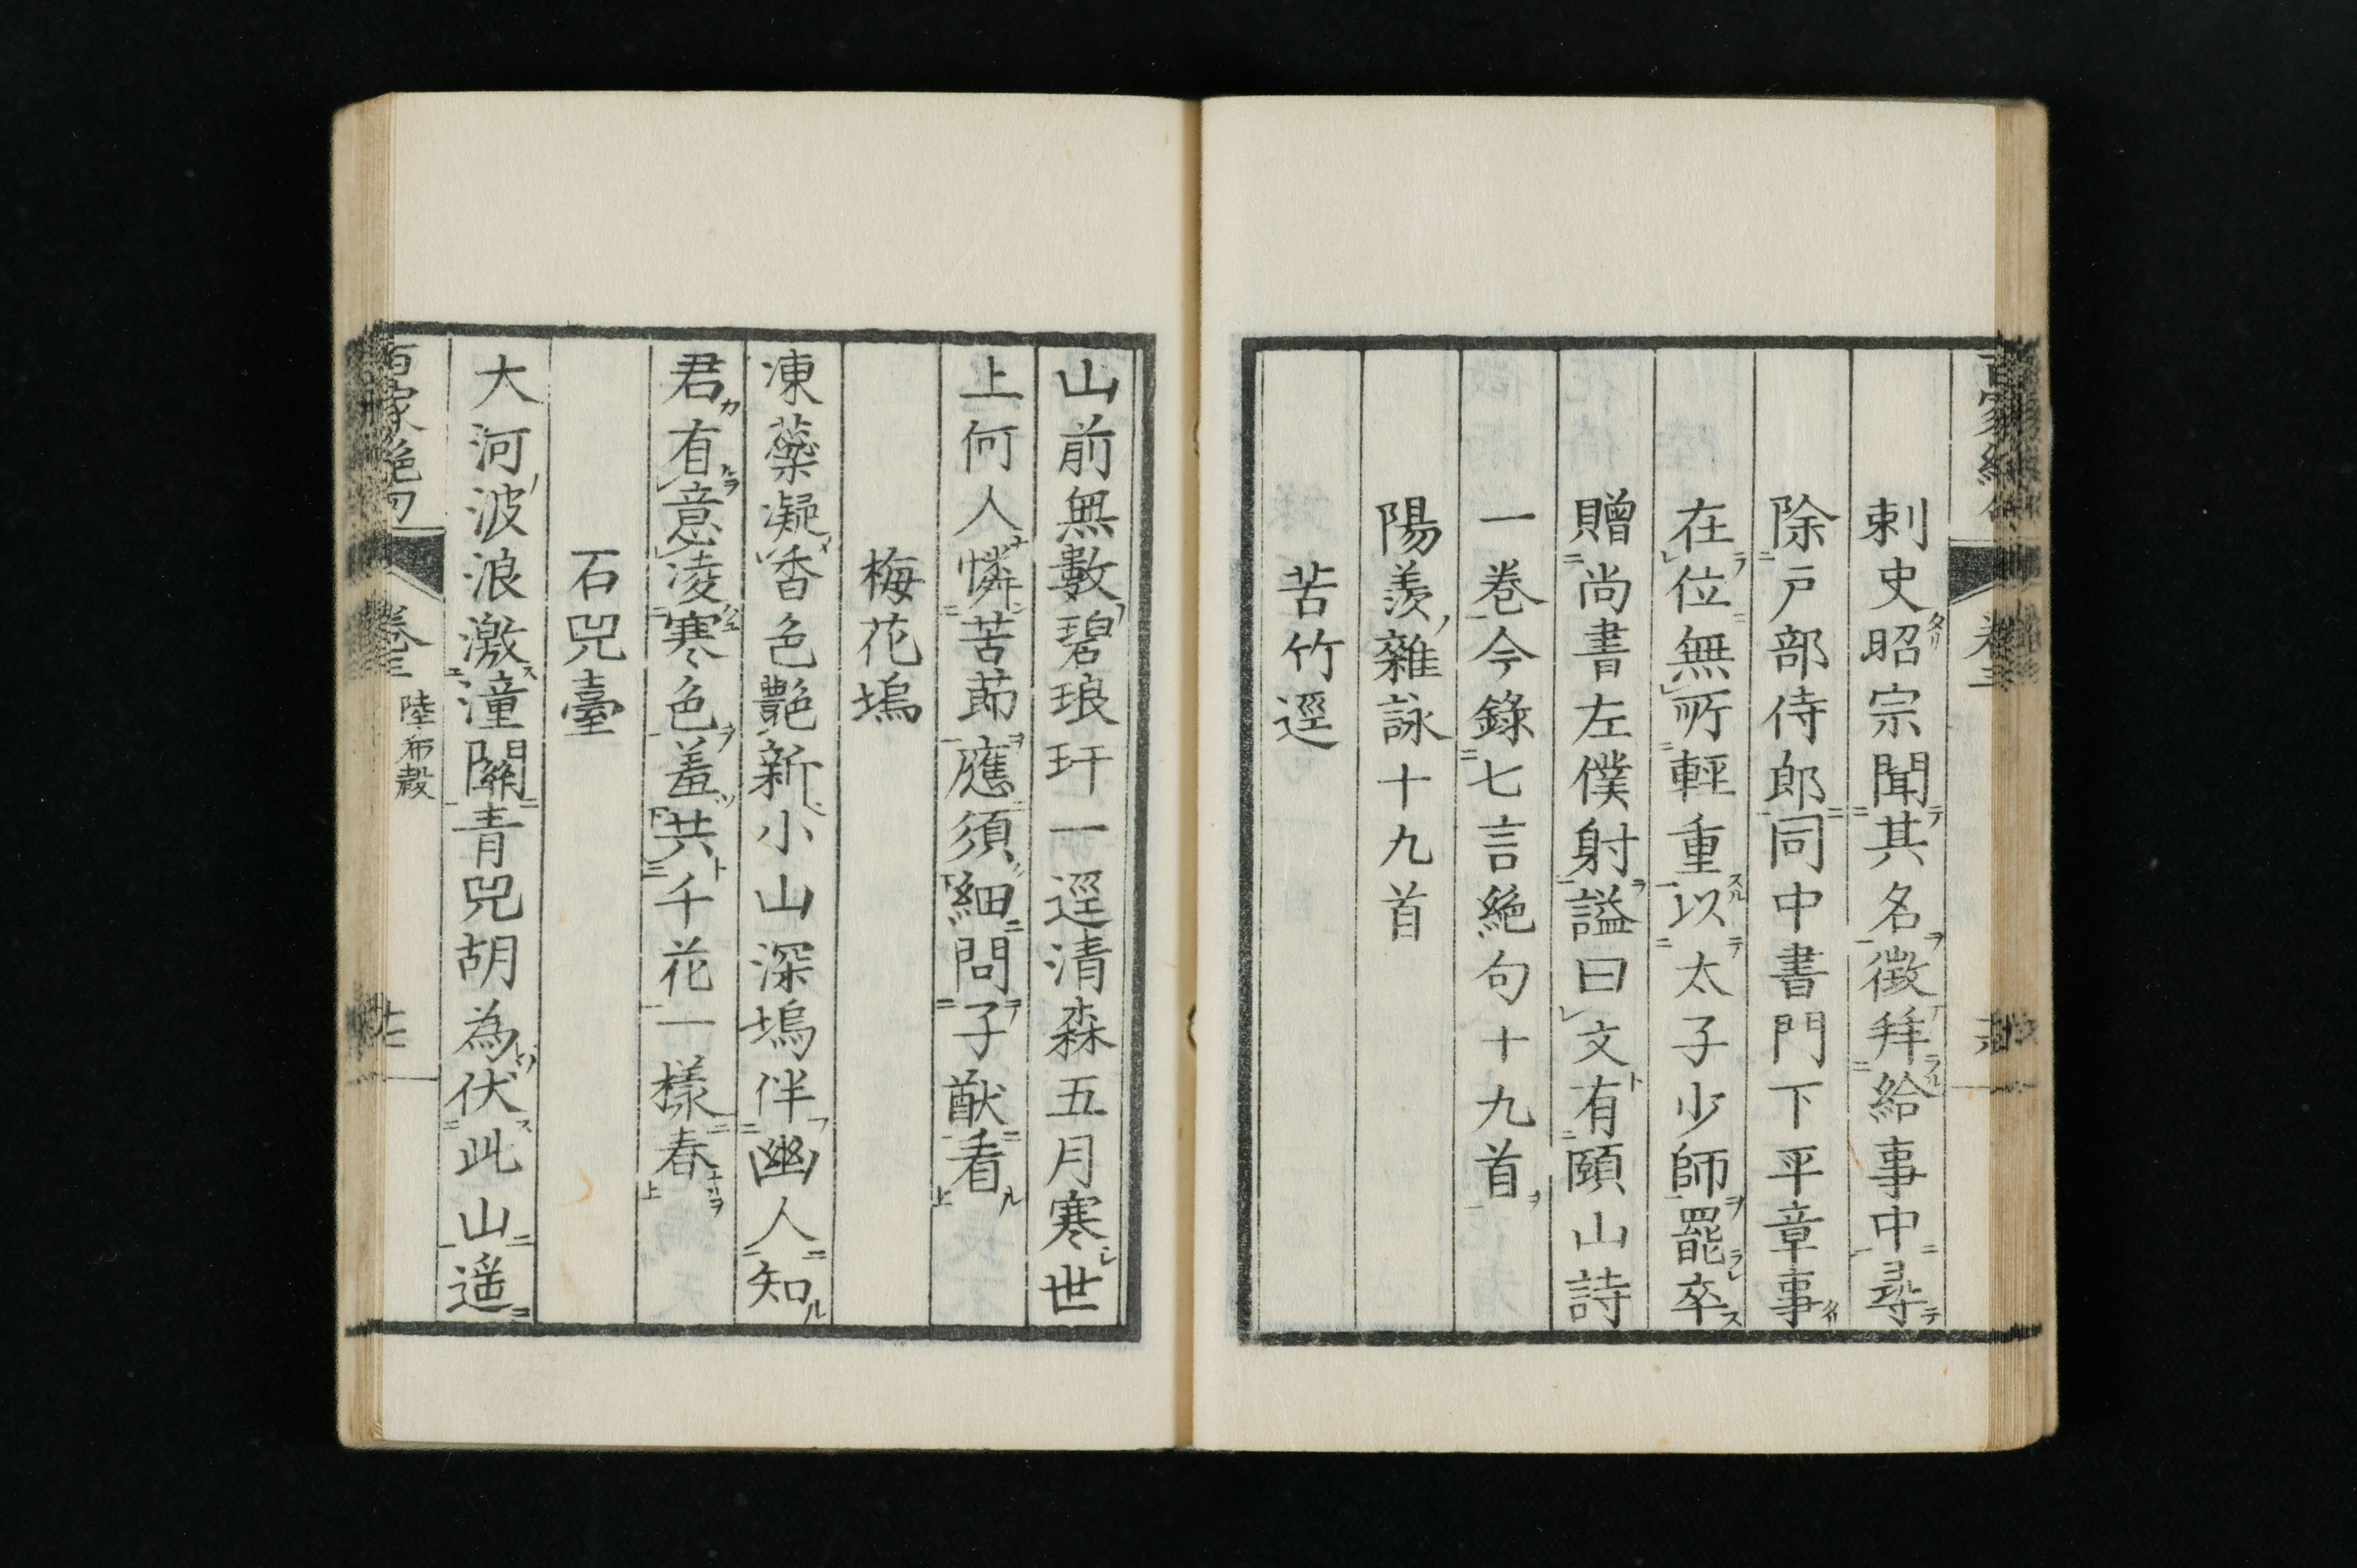 刺史昭宗聞其名徵拜給事中尋
除戶部侍郎同中書門下平章事
在位無所輕重以太子少師罷卒
贈尚書左僕射謚曰文有頤山詩
一卷今錄七言絶句十九首
陽羨雜詠十九首
苦竹逕
山前無數碧琅玕一逕清森五月寒世
上何人憐苦節應須細問子猷看
梅花塢
凍蘂凝香色艷新小山深塢伴幽人知
君有意凌寒色羞共千花一樣春
石兕臺
大河波浪激潼關青兕胡為伏此山遥
百家絶句
卷三
陸希聲